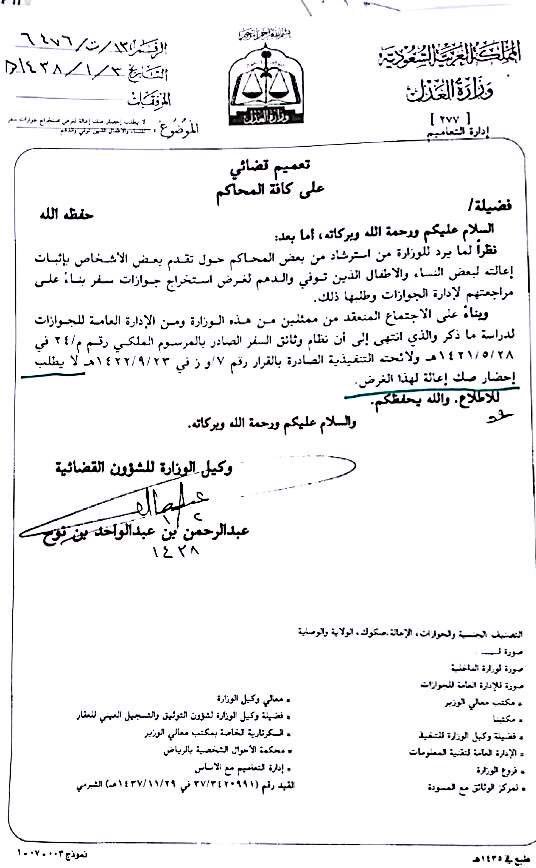 المملكة العربية السعودية
وزارة العدل
[ ٢٧٧ ]
إدارة التعاميم
بسم الله الرحمن الرحيم
وزارة العدل
الرقم: ١٣/ت/٦٤٧٦
التاريخ: ٣/١/١٤٣٨هـ
المرفقات:
الموضوع: لا يطلب إحضار صك إعالة لغرض استخراج جوازات سفر
للنساء والأطفال الذين توفي والدهم
تعميم قضائي
على كافة المحاكم
فضيلة/ حفظه الله
السلام عليكم ورحمة الله وبركاته، أما بعد:
نظراً لما يرد للوزارة من استرشاد من بعض المحاكم حول تقدم بعض الأشخاص بإثبات
إعالته لبعض النساء والاطفال الذين توفي والدهم لغرض استخراج جوازات سفر بناءً على
مراجعتهم لإدارة الجوازات وطلبها ذلك.
وبناءً على الاجتماع المنعقد من ممثلين من هذه الوزارة ومن الإدارة العامة للجوازات
لدراسة ما ذكر والذي انتهى إلى أن نظام وثائق السفر الصادر بالمرسوم الملكي رقم م/٢٤ في
١٤٢١/٥/٢٨هـ ولائحته التنفيذية الصادرة بالقرار رقم ٧/و ز في ١٤٢٢/٩/٢٣هـ لا يطلب
إحضار صك إعالة لهذا الغرض.
للاطلاع. والله يحفظكم.
والسلام عليكم ورحمة الله وبركاته.
وكيل الوزارة للشؤون القضائية
عبدالرحمن بن عبدالواحد بن نوح
١٤٣٨
التصنيف: الجنسية والجوازات، الإعالة، صكوك، الولاية والوصاية
صورة لـ
صورة لوزارة الداخلية
صورة للإدارة العامة للجوازات
• مكتب معالي الوزير
• مكتبنا
• فضيلة وكيل الوزارة للتنفيذ
• الإدارة العامة لتقنية المعلومات
• فروع الوزارة
• لمركز الوثائق مع المسودة
• معالي وكيل الوزارة
• فضيلة وكيل الوزارة لشؤون التوثيق والتسجيل العيني للعقار
• السكرتارية الخاصة بمكتب معالي الوزير
• محكمة الأحوال الشخصية بالرياض
• إدارة التعاميم مع الأساس
القيد رقم (٣٧/٣٤٢٠٩٩١ في ١٤٣٧/١١/٢٩هـ) الشبرمي
طبع في ١٤٣٥هـ
نموذج ٠٠٣-٠٧-١